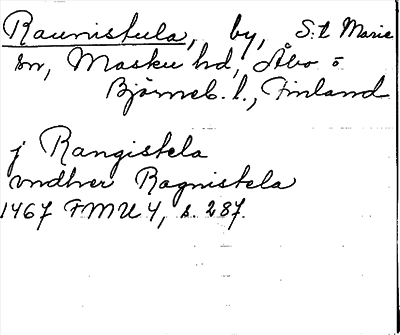 Raunistula, by, S:t Marie
sn, Masku hd, Åbo o.
Björneb. l., Finland
j Rangistela
vndher Ragnistela
1467 FMU 4, s. 287.